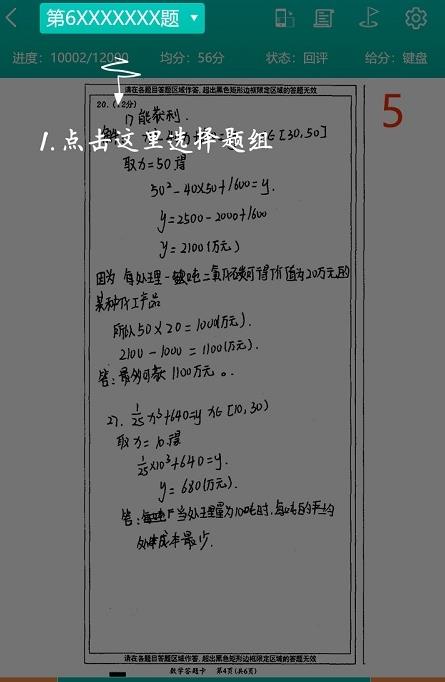 第6XXXXXXX题
进度：10002/12000 均分：56分 状态：回评 给分：键盘
请在各题目答题区域作答，超出黑色矩形边框限定区域的答题无效
20. (12分)
5
1) 能获利.
1.点击这里选择题组
∈[30,50]
取x=50得
50²-40×50+1600=y.
y=2500-2000+1600
y=2100(万元)
因为 每处理一吨二氧化碳可得价值为20万元的
某种化工产品
所以50×20=1000(万元).
2100-1000=1100(万元).
答:最多可获1100万元。
27. 1/25 x³+640=y x∈[10,30)
取x=10得
1/25×10³+640=y.
y=680(万元).
答: 当处理量为10吨时,每吨的平均
处理成本最少.
请在各题目答题区域作答，超出黑色矩形边框限定区域的答题无效
数学答题卡 第4页(共6页)